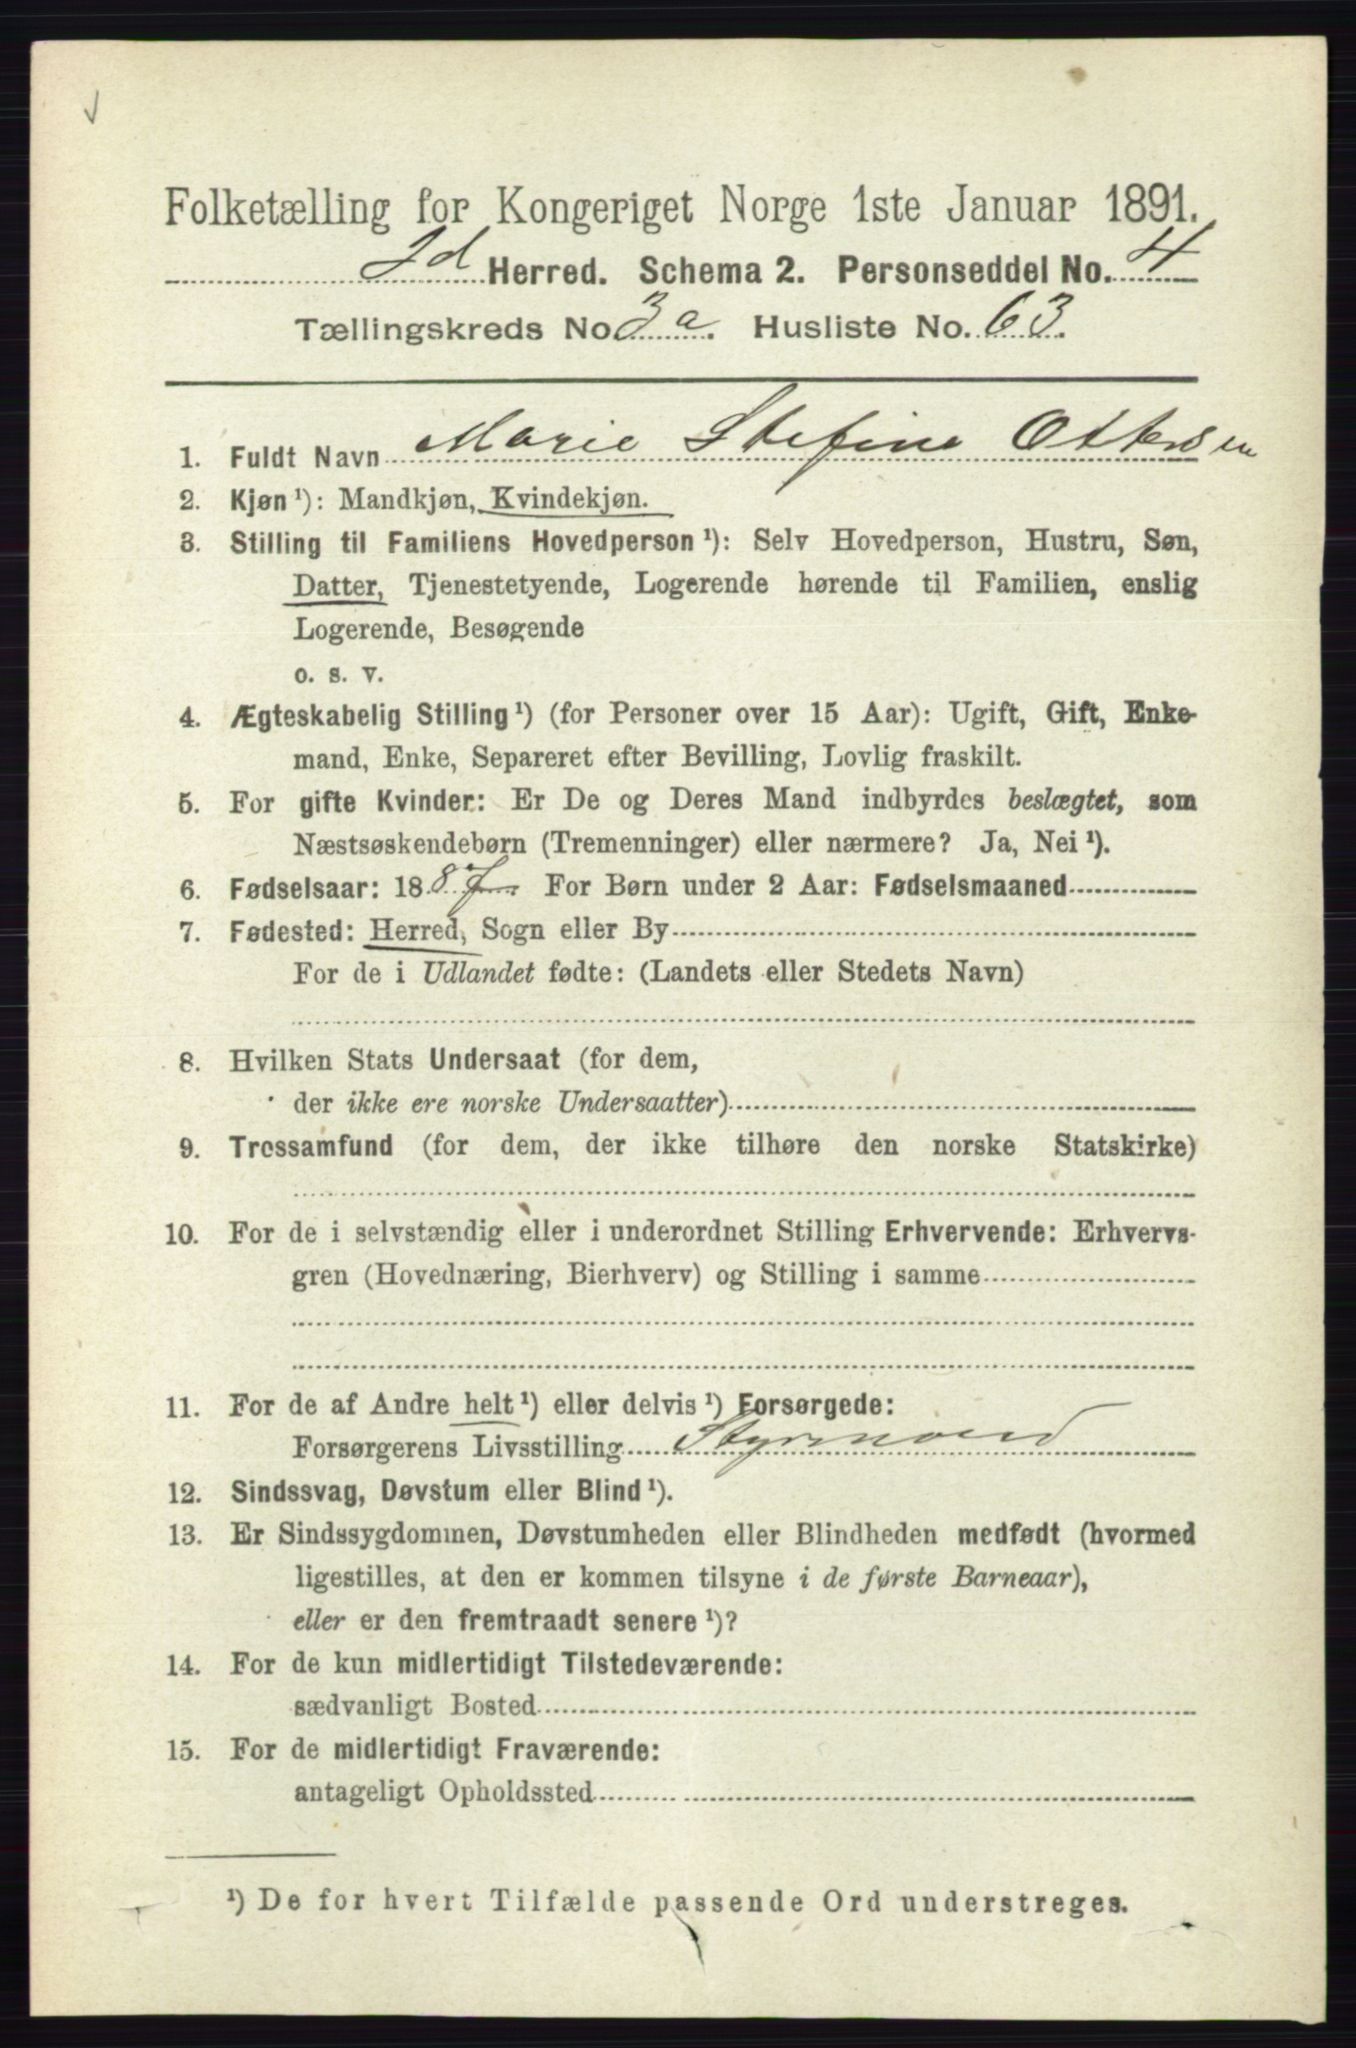 Folketælling for Kongeriget Norge 1ste Januar 1891.
Id Herred. Schema 2. Personseddel No. 4
Tællingskreds No 3a. Husliste No. 63.
1. Fuldt Navn Marie Stefine Ottersen
2. Kjøn ¹): Mandkjøn, Kvindekjøn.
3. Stilling til Familiens Hovedperson ¹): Selv Hovedperson, Hustru, Søn,
Datter, Tjenestetyende, Logerende hørende til Familien, enslig
Logerende, Besøgende
o. s. v.
4. Ægteskabelig Stilling ¹) (for Personer over 15 Aar): Ugift, Gift, Enke-
mand, Enke, Separeret efter Bevilling, Lovlig fraskilt.
5. For gifte Kvinder: Er De og Deres Mand indbyrdes beslægtet, som
Næstsøskendebørn (Tremenninger) eller nærmere? Ja, Nei ¹).
6. Fødselsaar: 1887 For Børn under 2 Aar: Fødselsmaaned
7. Fødested: Herred, Sogn eller By
For de i Udlandet fødte: (Landets eller Stedets Navn)
8. Hvilken Stats Undersaat (for dem,
der ikke ere norske Undersaatter)
9. Trossamfund (for dem, der ikke tilhøre den norske Statskirke)
10. For de i selvstændig eller i underordnet Stilling Erhvervende: Erhvervs-
gren (Hovednæring, Bierhverv) og Stilling i samme
11. For de af Andre helt ¹) eller delvis ¹) Forsørgede:
Forsørgerens Livsstilling Styrmand
12. Sindssvag, Døvstum eller Blind ¹).
13. Er Sindssygdommen, Døvstumheden eller Blindheden medfødt (hvormed
ligestilles, at den er kommen tilsyne i de første Barneaar),
eller er den fremtraadt senere ¹)?
14. For de kun midlertidigt Tilstedeværende:
sædvanligt Bosted
15. For de midlertidigt Fraværende:
antageligt Opholdssted
¹) De for hvert Tilfælde passende Ord understreges.